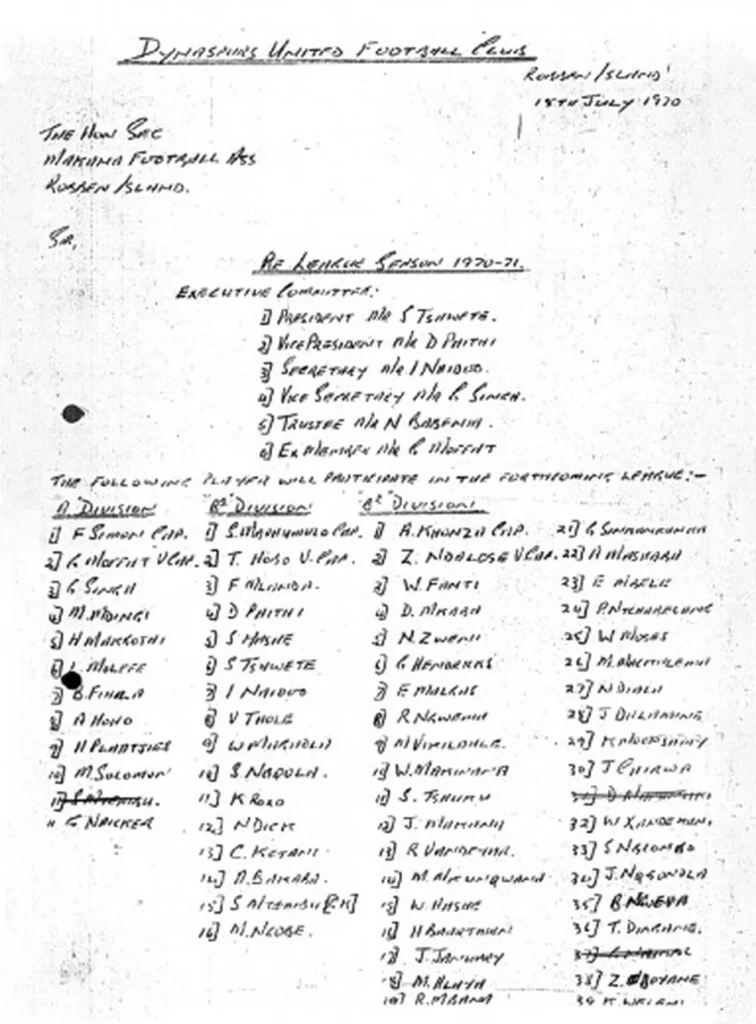 DYNASPURS UNITED FOOTBALL CLUB
ROBBEN ISLAND
18TH JULY 1970
THE HON SEC
MAKANA FOOTBALL ASS
ROBBEN ISLAND.
SIR,
RE LEAGUE SEASON 1970-71.
EXECUTIVE COMMITTEE:
1] PRESIDENT MR S TSHWETE.
2] VICE PRESIDENT MR D PHITHI
3] SECRETARY MR I NAIDOO.
4] VICE SECRETARY MR G SINGH.
5] TRUSTEE MR N BABENIA.
6] EX MEMBER MR G MOFFAT
THE FOLLOWING PLAYER WILL PARTICIPATE IN THE FORTHCOMING LEAGUE:-
A DIVISION
1] F SIMON CAP.
2] G MOFFAT V CAP.
3] G SINGH
4] M. MDINGI
5] H MAKGOTHI
6] L. MOLEFE
7] B. FIHLA
8] A HOHO
9] H PLAATJIES
10] M. SOLOMON
11 G NAICKER
B1 DIVISION
1] CAP.
2] T. HOHO V. CAP.
3] F MLANDA.
4] D PHITHI
5] S HASHE
6] S TSHWETE
7] I NAIDOO
8] V THOLE
9] W
10] S. NDDULA.
11] K ROXO
12] N DICK
13] C. KETANI
14]
15] S
16] M. NCUBE.
B2 DIVISION
1] A. KHONZA CAP.
2] Z. NDALOSE V CAP.
3] W. FANTI
4] D.
5] N. ZWENI
6] G HENDRICKS
7] E MALGAS
8] R NGWENYA
9] M VIKILAHLE.
10] W. MAKINANA
11] S. TSHUKU
12] J.
13] R VANDEYAR.
14] M.
15] W. HASHE
16] H BAARTMAN
17] J. JANUARY
18] M.
19] R. MBANA
21] G
22]
23] E MBELE
24] P.
25] W MOSES
26] M.
27] N DIALA
28] J DHLAMINI
29] K
30] J CHIRWA
32] W XANDEMINI
33] S NGLOMBO
34] J. NQGONDLA
35] B NGWEVA
36] T.
38] Z. EBOYANE
39 K.